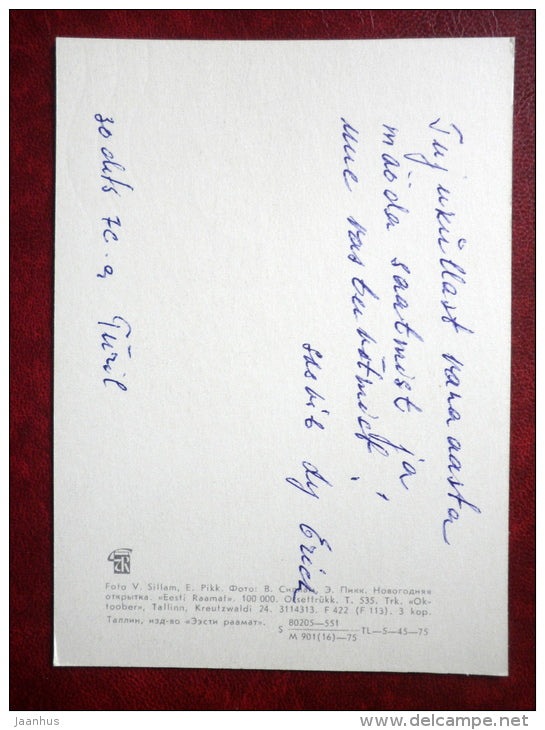 Tujuküllast vana aasta
mööda saatmist ja
uue vastuvõtmist!
soovib Ly Erich
30 dets 76.a, Türil
Foto V. Sillam, E. Pikk. Фото: В. Силлам, Э. Пикк. Новогодняя
открытка. «Eesti Raamat». 100 000. Ofsettrükk. T. 535. Trk. «Ok-
toober», Tallinn, Kreutzwaldi 24. 3114313. F 422 (F 113). 3 kop.
Таллин, изд-во «Ээсти раамат». S 80205—551 TL—5—45—75
M 901(16)—75
jaanhus
www.delcampe.net